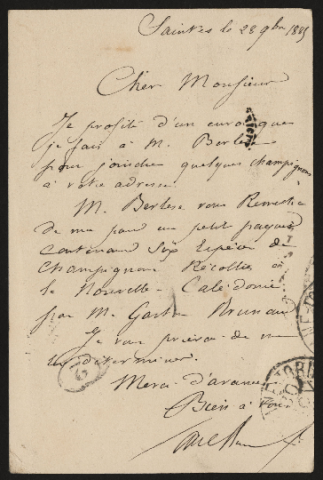 Saintes le 28 9bre 1885
Cher Monsieur
Je profite d'un envoi que
je fais à M. Berlese
pour joindre quelques champignons
à votre adresse.
M. Berlese vous Remettra
de ma part un petit paquet
contenant Six Espèces de
Champignons Récoltés à
la Nouvelle-Calédonie
par M. Gaston Bruneau
Je vous prierai de me
les déterminer.
Merci d'avance
Bien à vous